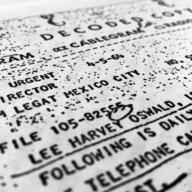 DECODED CO
RAM OXX CABLEGRAM
URGENT 4-5-64 NO.
IRECTOR
M LEGAT MEXICO CITY
FILE 105-82555
LEE HARVEY OSWALD,
FOLLOWING IS DAIL
TELEPHONE C